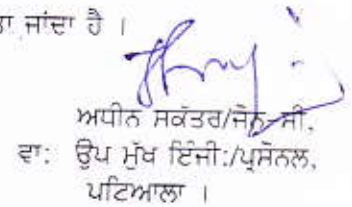 ਜਾਂਦਾ ਹੈ ।
ਅਧੀਨ ਸਕੱਤਰ/ਜੋਨ-ਸੀ,
ਵਾ: ਉਪ ਮੁੱਖ ਇੰਜੀ:/ਪ੍ਰਸੋਨਲ,
ਪਟਿਆਲਾ ।